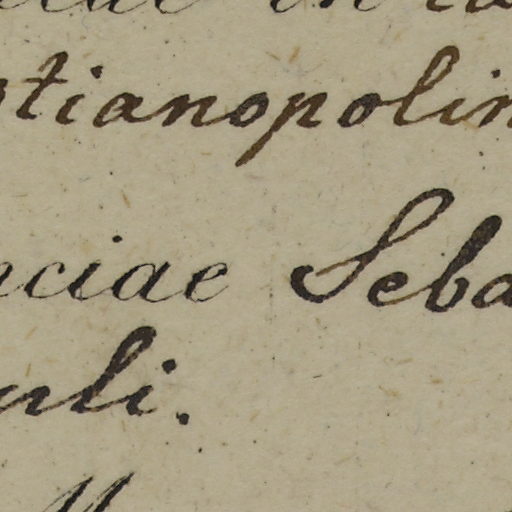 stianopolin
nciae Seba
uli.